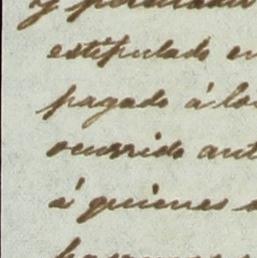 y
estipulado en
pagado á los
ocurrido ant
á quienes